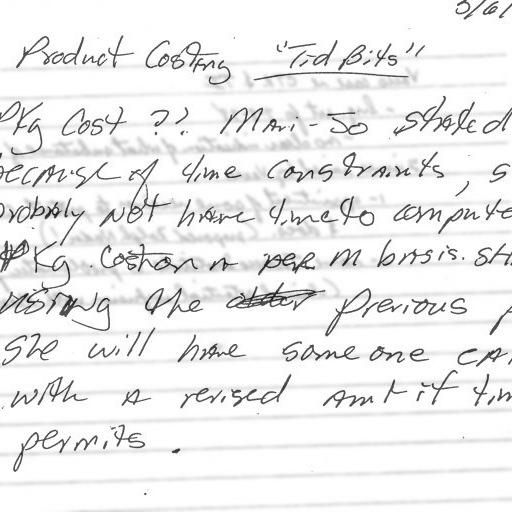 3/6/
Product Costing "Tid Bits"
Pkg Cost ?? Mari-Jo stated
because of time constraints, s
probably not have time to compute
Pkg. Cost on a per M basis. Sh
using the previous p
She will have someone ca
with a revised amt if tim
permits.